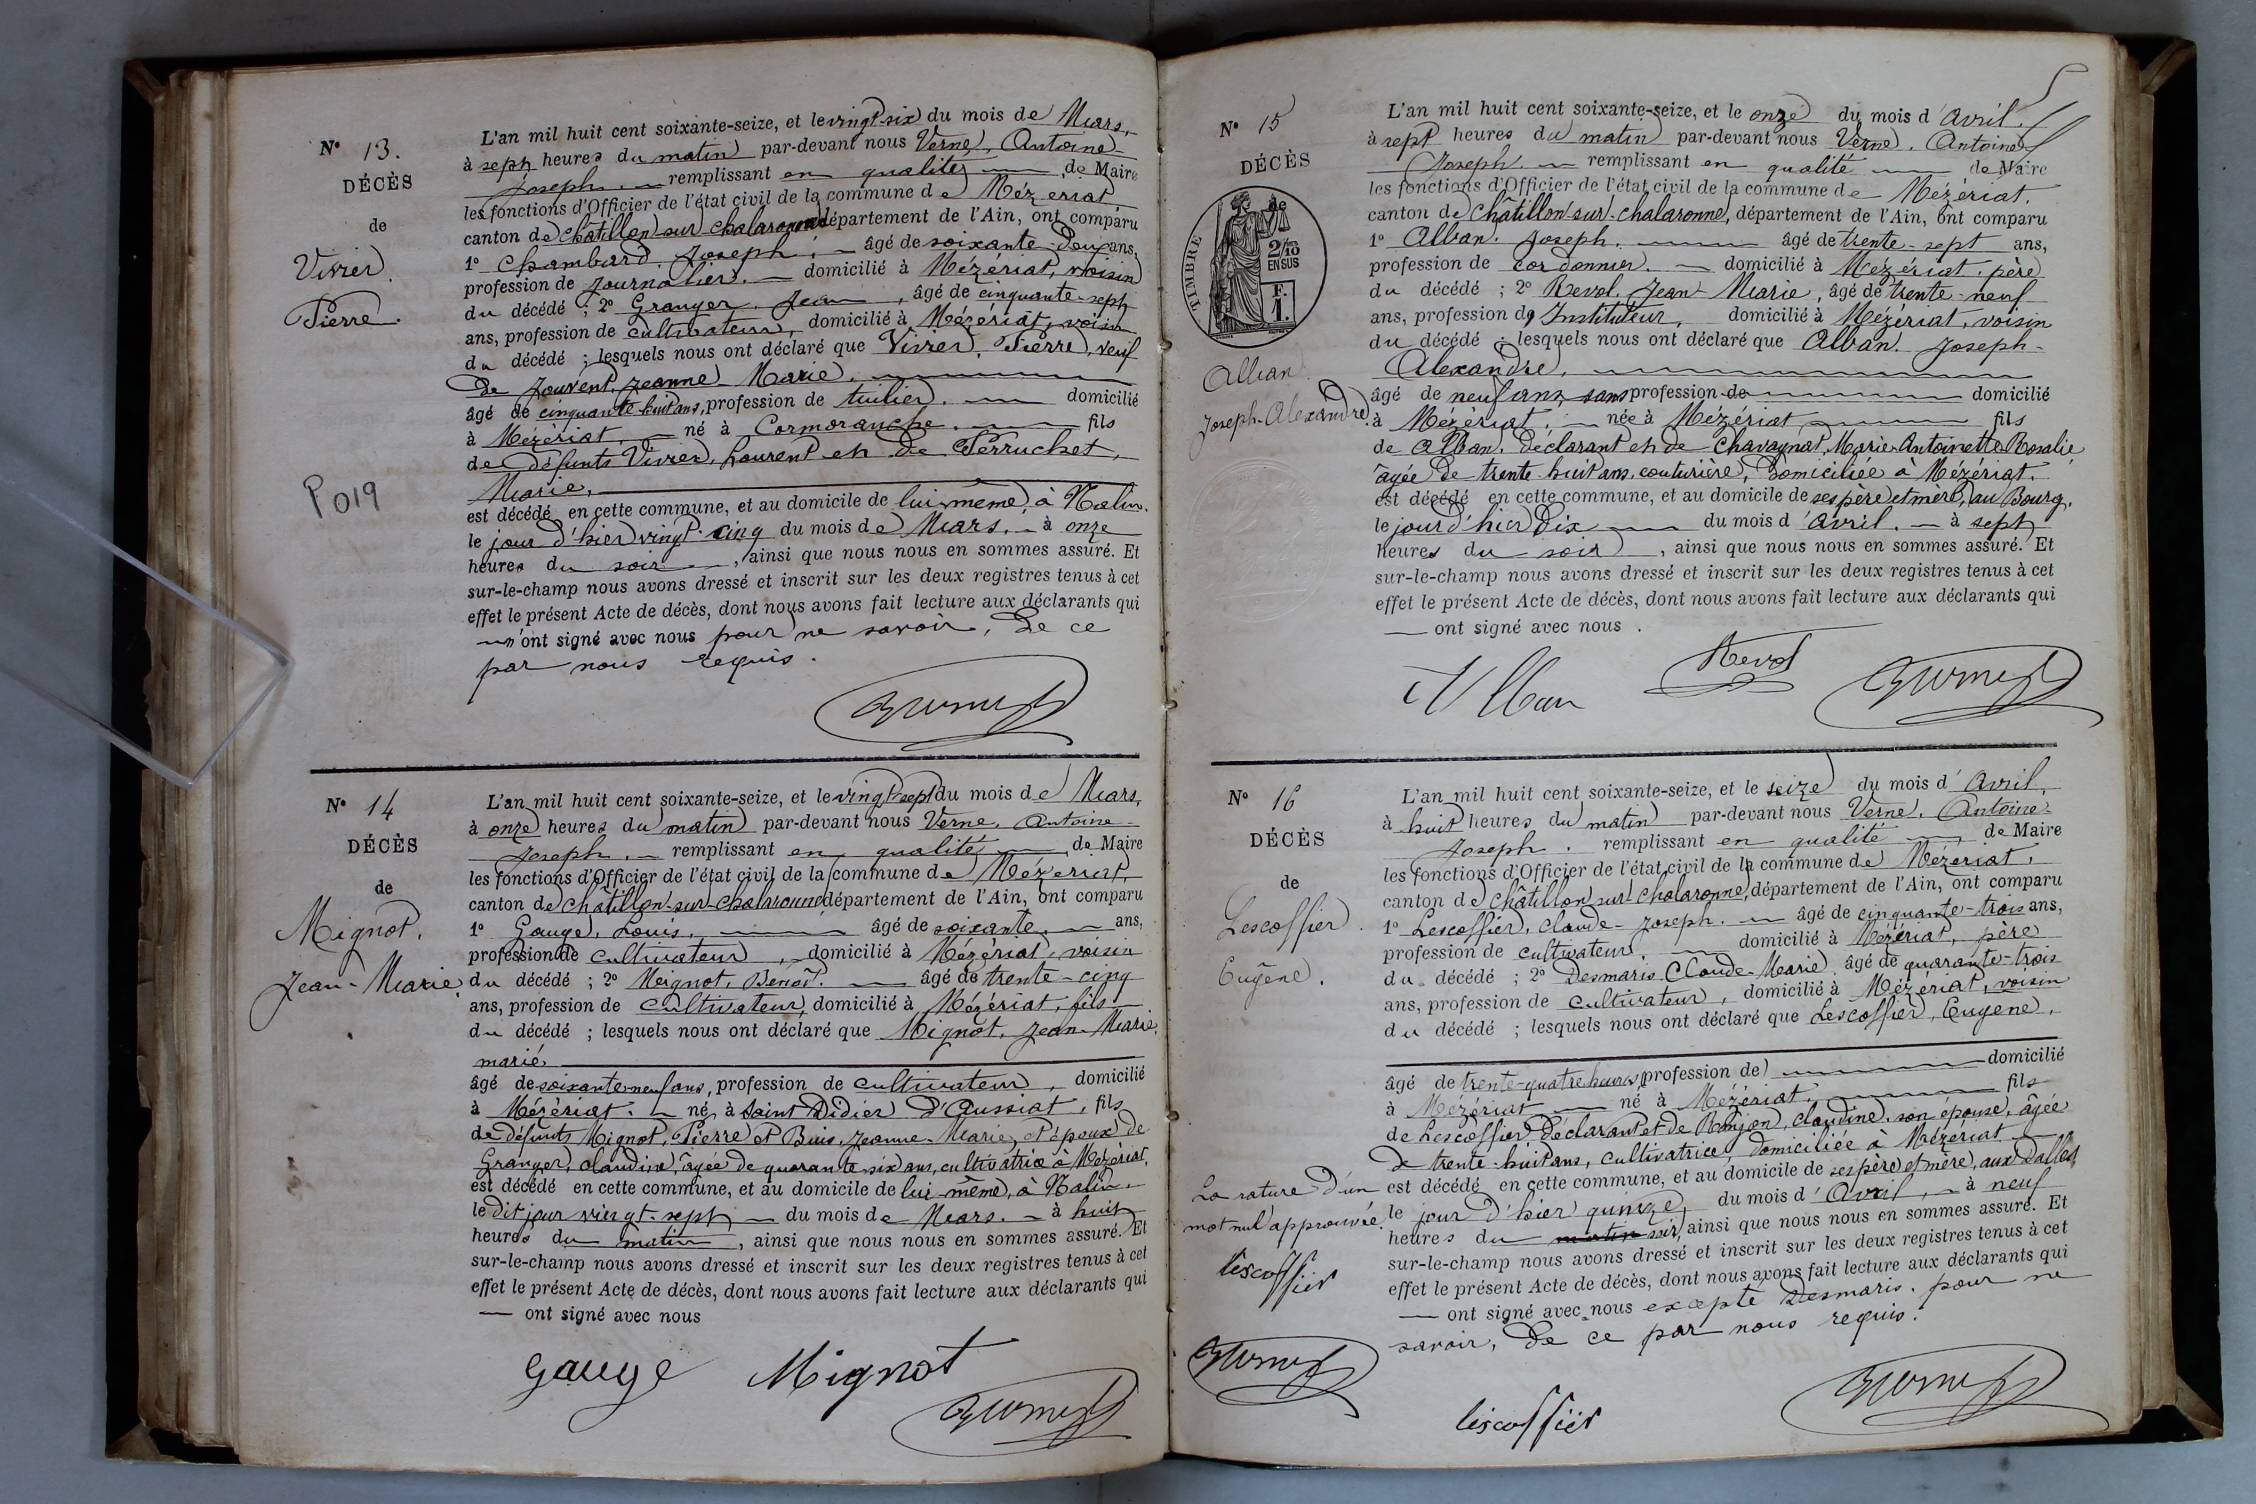 N° 13.
DÉCÈS
de
Vivier
Pierre.
P019
L'an mil huit cent soixante-seize, et le vingt-six du mois de Mars,
à sept heures du matin par-devant nous Verne, Antoine-
Joseph. remplissant en qualité de Maire
les fonctions d'Officier de l'état civil de la commune de Mézériat
canton de Châtillon-sur-Chalaronne département de l'Ain, ont comparu
1° Chambard, Joseph, âgé de soixante-deux ans,
profession de Journalier. domicilié à Mézériat, voisin
du décédé ; 2° Granger, Jean, âgé de cinquante-sept
ans, profession de cultivateur, domicilié à Mézériat, voisin
du décédé ; lesquels nous ont déclaré que Vivier, Pierre, veuf
de Jouvent, Jeanne-Marie.
âgé de cinquante-huit ans, profession de tuilier. domicilié
à Mézériat. né à Cormoranche. fils
de défunts Vivier, Laurent et de Perruchet,
Marie,
est décédé en cette commune, et au domicile de lui-même, à Nalin.
le jour d'hier vingt-cinq du mois de Mars. à onze
heures du soir, ainsi que nous nous en sommes assuré. Et
sur-le-champ nous avons dressé et inscrit sur les deux registres tenus à cet
effet le présent Acte de décès, dont nous avons fait lecture aux déclarants qui
n'ont signé avec nous pour ne savoir, de ce
par nous requis.
N° 14
DÉCÈS
de
Mignot.
Jean-Marie.
L'an mil huit cent soixante-seize, et le vingt-sept du mois de Mars,
à onze heures du matin par-devant nous Verne, Antoine-
Joseph. remplissant en qualité de Maire
les fonctions d'Officier de l'état civil de la commune de Mézériat,
canton de Châtillon-sur-Chalaronne département de l'Ain, ont comparu
1° Gauge, Louis. âgé de soixante ans,
profession de cultivateur, domicilié à Mézériat, voisin
du décédé ; 2° Meignot, Benoît. âgé de trente-cinq
ans, profession de cultivateur, domicilié à Mézériat, fils
du décédé ; lesquels nous ont déclaré que Mignot, Jean-Marie,
marié
âgé de soixante neuf ans, profession de cultivateur, domicilié
à Mézériat. né à Saint Didier d'Aussiat, fils
de défunts Mignot, Pierre et Buis, Jeanne-Marie, et époux de
Granger, claudine, âgée de quarante-six ans, cultivatrice à Mézériat,
est décédé en cette commune, et au domicile de lui-même, à Nalin.
le dit jour vingt-sept du mois de Mars. à huit
heures du matin, ainsi que nous nous en sommes assuré. Et
sur-le-champ nous avons dressé et inscrit sur les deux registres tenus à cet
effet le présent Acte de décès, dont nous avons fait lecture aux déclarants qui
ont signé avec nous
Gauge Mignot
N° 15
DÉCÈS
de
TIMBRE
2/10
EN SUS
F.
1.
Alban
Joseph-Alexandre.
L'an mil huit cent soixante-seize, et le onze du mois d'Avril.
à sept heures du matin par-devant nous Verne, Antoine
Joseph remplissant en qualité de Maire
les fonctions d'Officier de l'état civil de la commune de Mézériat.
canton de Châtillon-sur-Chalaronne, département de l'Ain, ont comparu
1° Alban. Joseph. âgé de trente-sept ans,
profession de cordonnier. domicilié à Mézériat. père
du décédé ; 2° Revol, Jean-Marie, âgé de trente-neuf
ans, profession d'Instituteur, domicilié à Mézériat, voisin
du décédé ; lesquels nous ont déclaré que Alban. Joseph-
Alexandre,
âgé de neuf ans, sans profession de domicilié
à Mézériat, née à Mézériat fils
de Alban, déclarant et de Chavagnat, Marie-Antoinette-Rosalie
âgée de trente-huit ans, couturière, domiciliée à Mézériat.
est décédé en cette commune, et au domicile de ses père et mère, au Bourg,
le jour d'hier dix du mois d'avril. à sept
heures du soir, ainsi que nous nous en sommes assuré. Et
sur-le-champ nous avons dressé et inscrit sur les deux registres tenus à cet
effet le présent Acte de décès, dont nous avons fait lecture aux déclarants qui
ont signé avec nous.
Alban Revol
N° 16
DÉCÈS
de
Lescoffier.
Eugène.
La rature d'un
mot nul approuvée.
lescoffier
L'an mil huit cent soixante-seize, et le seize du mois d'Avril,
à huit heures du matin par-devant nous Verne, Antoine-
Joseph. remplissant en qualité de Maire
les fonctions d'Officier de l'état civil de la commune de Mézériat,
canton de Châtillon-sur-Chalaronne, département de l'Ain, ont comparu
1° Lescoffier, Claude-Joseph. âgé de cinquante-trois ans,
profession de cultivateur. domicilié à Mézériat, père
du décédé ; 2° Desmaris Claude-Marie, âgé de quarante-trois
ans, profession de cultivateur, domicilié à Mézériat, voisin
du décédé ; lesquels nous ont déclaré que Lescoffier, Eugène,
âgé de trente-quatre heures, profession de domicilié
à Mézériat né à Mézériat, fils
de Lescoffier, déclarant et de Ronjon, claudine, son épouse, âgée
de trente-huit ans, cultivatrice, domiciliée à Mézériat
est décédé en cette commune, et au domicile de ses père et mère, aux Dalles
le jour d'hier quinze, du mois d'Avril, à neuf
heures du matin soir, ainsi que nous nous en sommes assuré. Et
sur-le-champ nous avons dressé et inscrit sur les deux registres tenus à cet
effet le présent Acte de décès, dont nous avons fait lecture aux déclarants qui
ont signé avec nous excepté Desmaris. pour ne
savoir, de ce par nous requis.
lescoffier